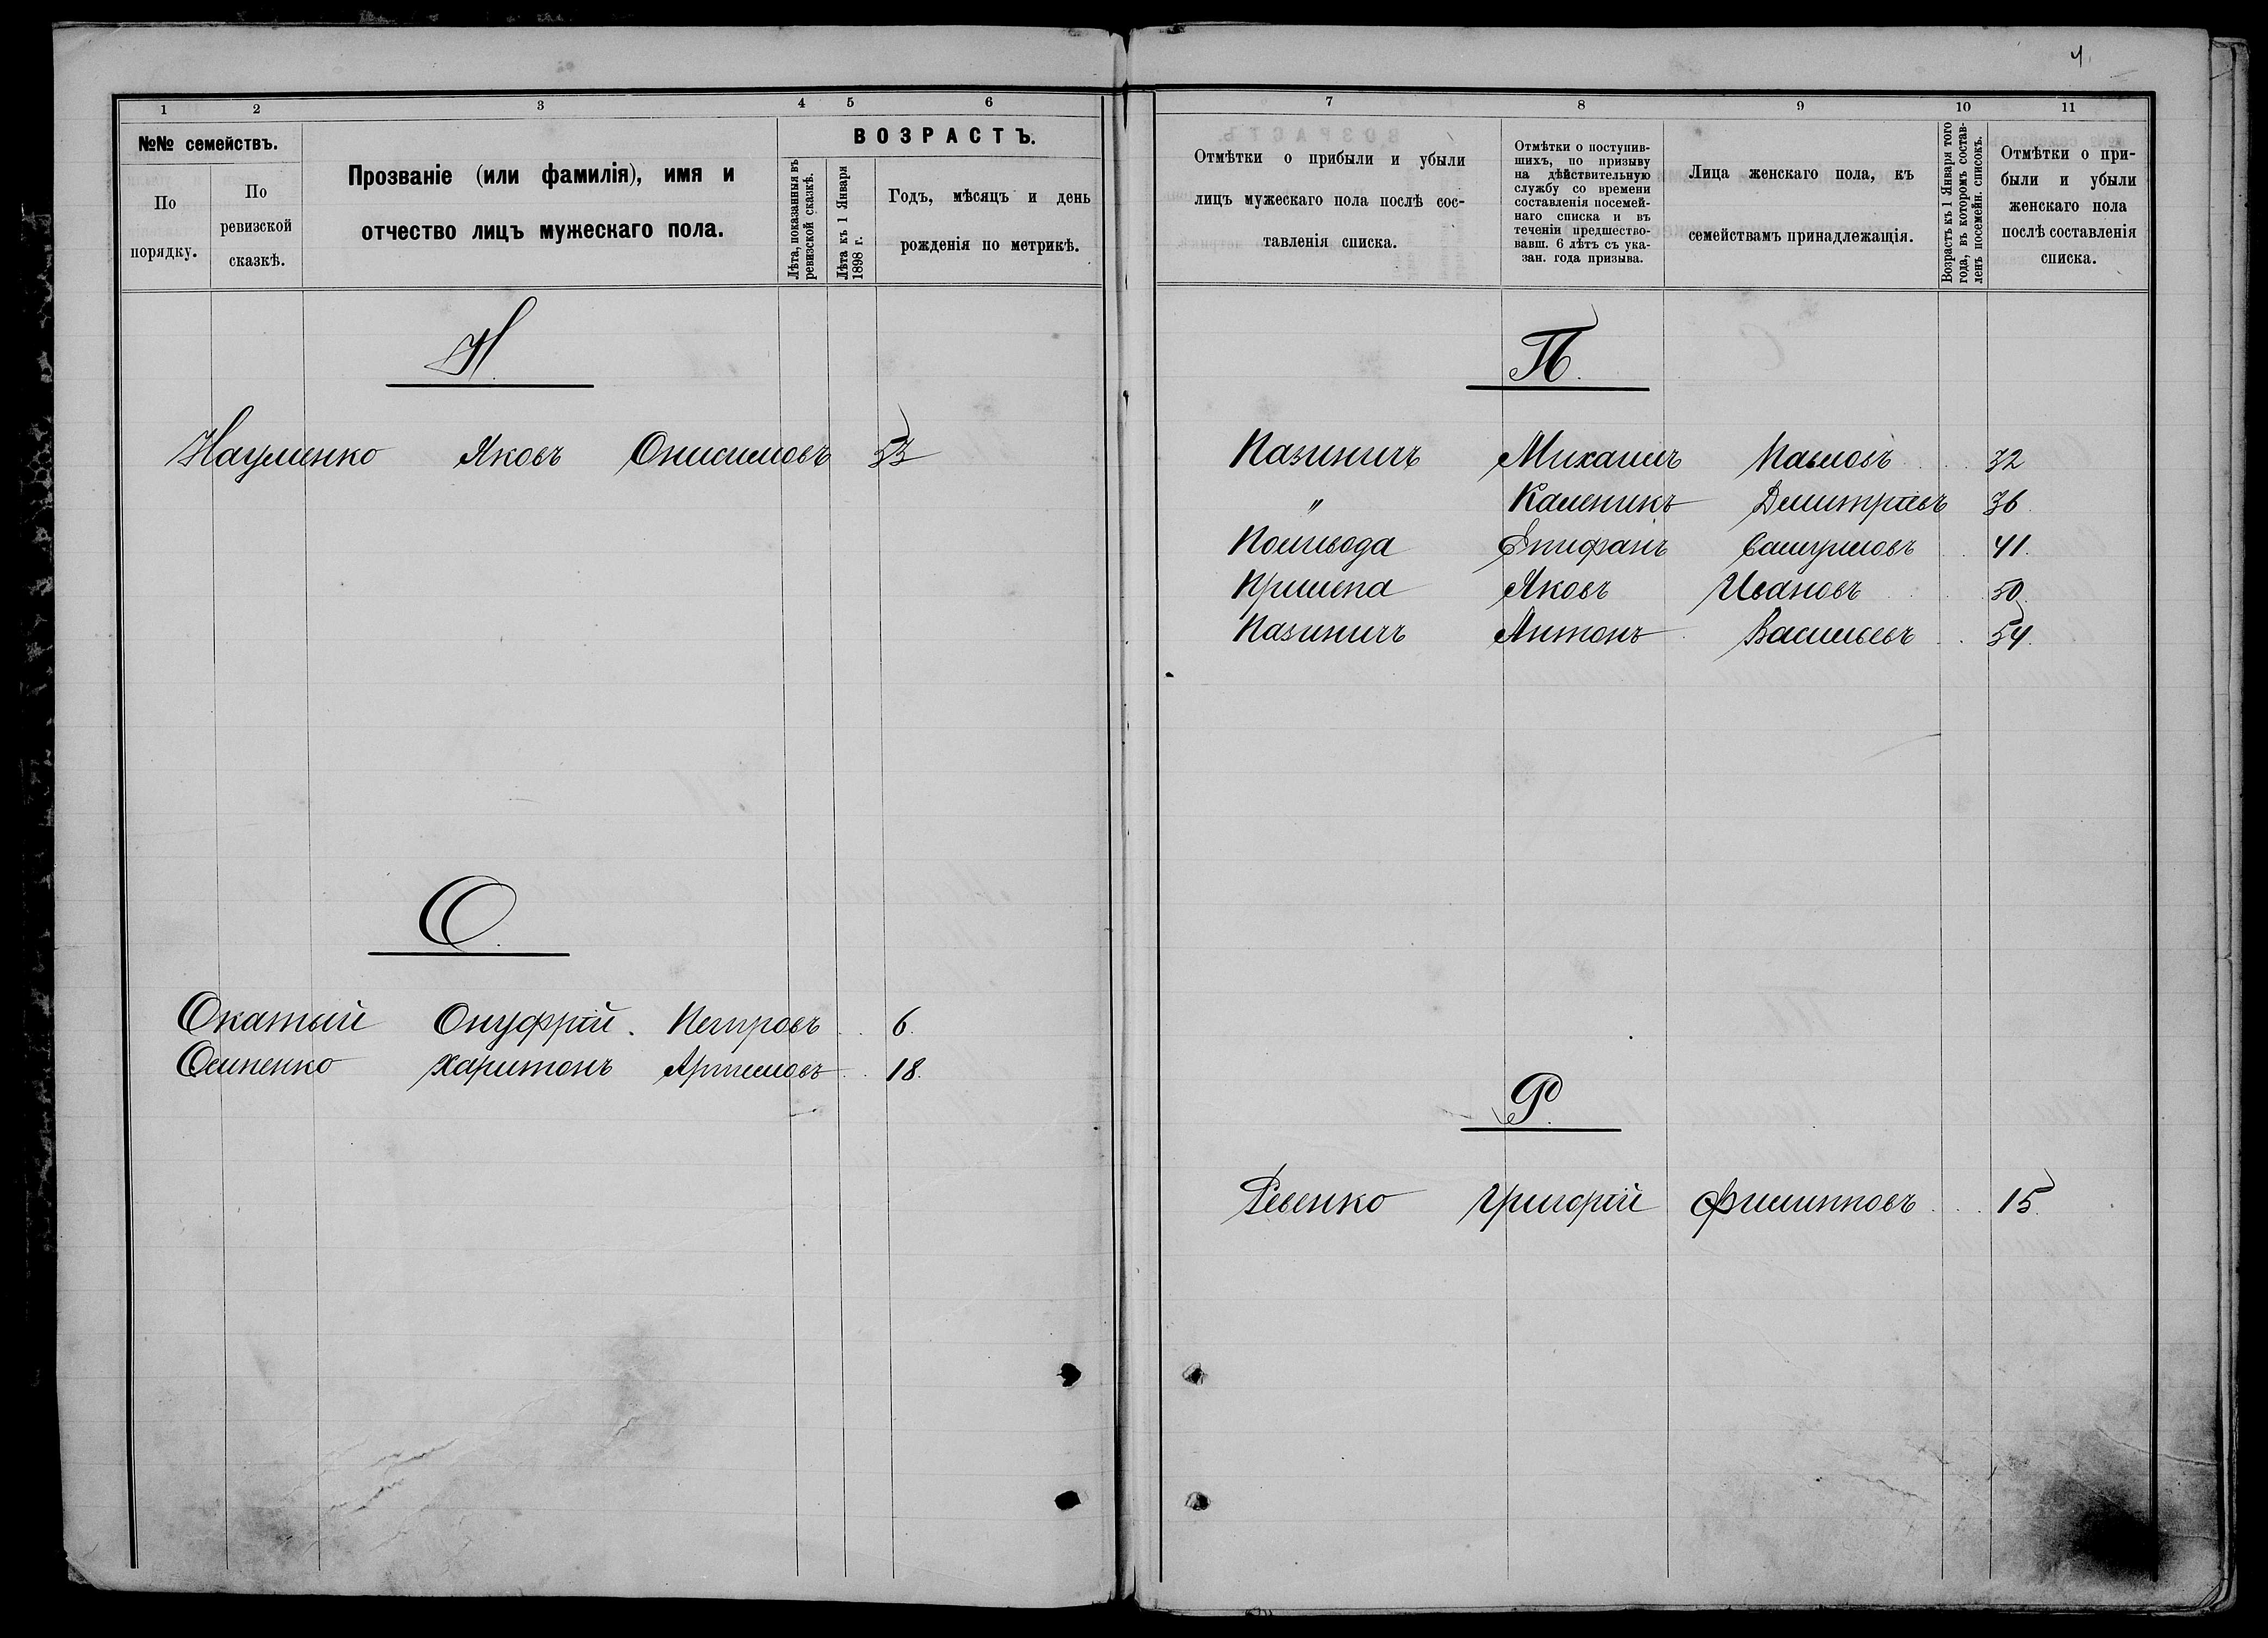 4.
1 2 3 4 5 6
№№ семействъ.
По порядку.
По ревизской сказкѣ.
Прозваніе (или фамилія), имя и
отчество лицъ мужескаго пола.
ВОЗРАСТЪ.
Лѣта, показанныя въ
ревизской сказкѣ.
Лѣта къ 1 Января
1898 г.
Годъ, мѣсяцъ и день
рожденія по метрикѣ.
Н.
Науменко Яковъ Онисимовъ 53
О.
Окатый Онуфрій. Петровъ 6.
Осипенко Харитонъ Артемовъ 18.
7 8 9 10 11
Отмѣтки о прибыли и убыли
лицъ мужескаго пола послѣ сос-
тавленія списка.
Отмѣтки о поступив-
шихъ, по призыву
на дѣйствительную
службу со времени
составленія посемей-
наго списка и въ
теченіи предшество-
вавш. 6 лѣтъ съ ука-
зан. года призыва.
Лица женскаго пола, къ
семействамъ принадлежащія.
Возрастъ къ 1 Января того
года, въ которомъ состав-
ленъ посемейн. списокъ.
Отмѣтки о при-
были и убыли
женскаго пола
послѣ составленія
списка.
П.
Пазиничъ Михаилъ Павловъ 32
" Каленикъ Дмитріевъ 36.
Епифанъ 41.
Пришепа Яковъ Ивановъ 50.
Пазиничъ Антонъ Васильевъ 54.
Р.
Ревенко Григорій Филипповъ 15.